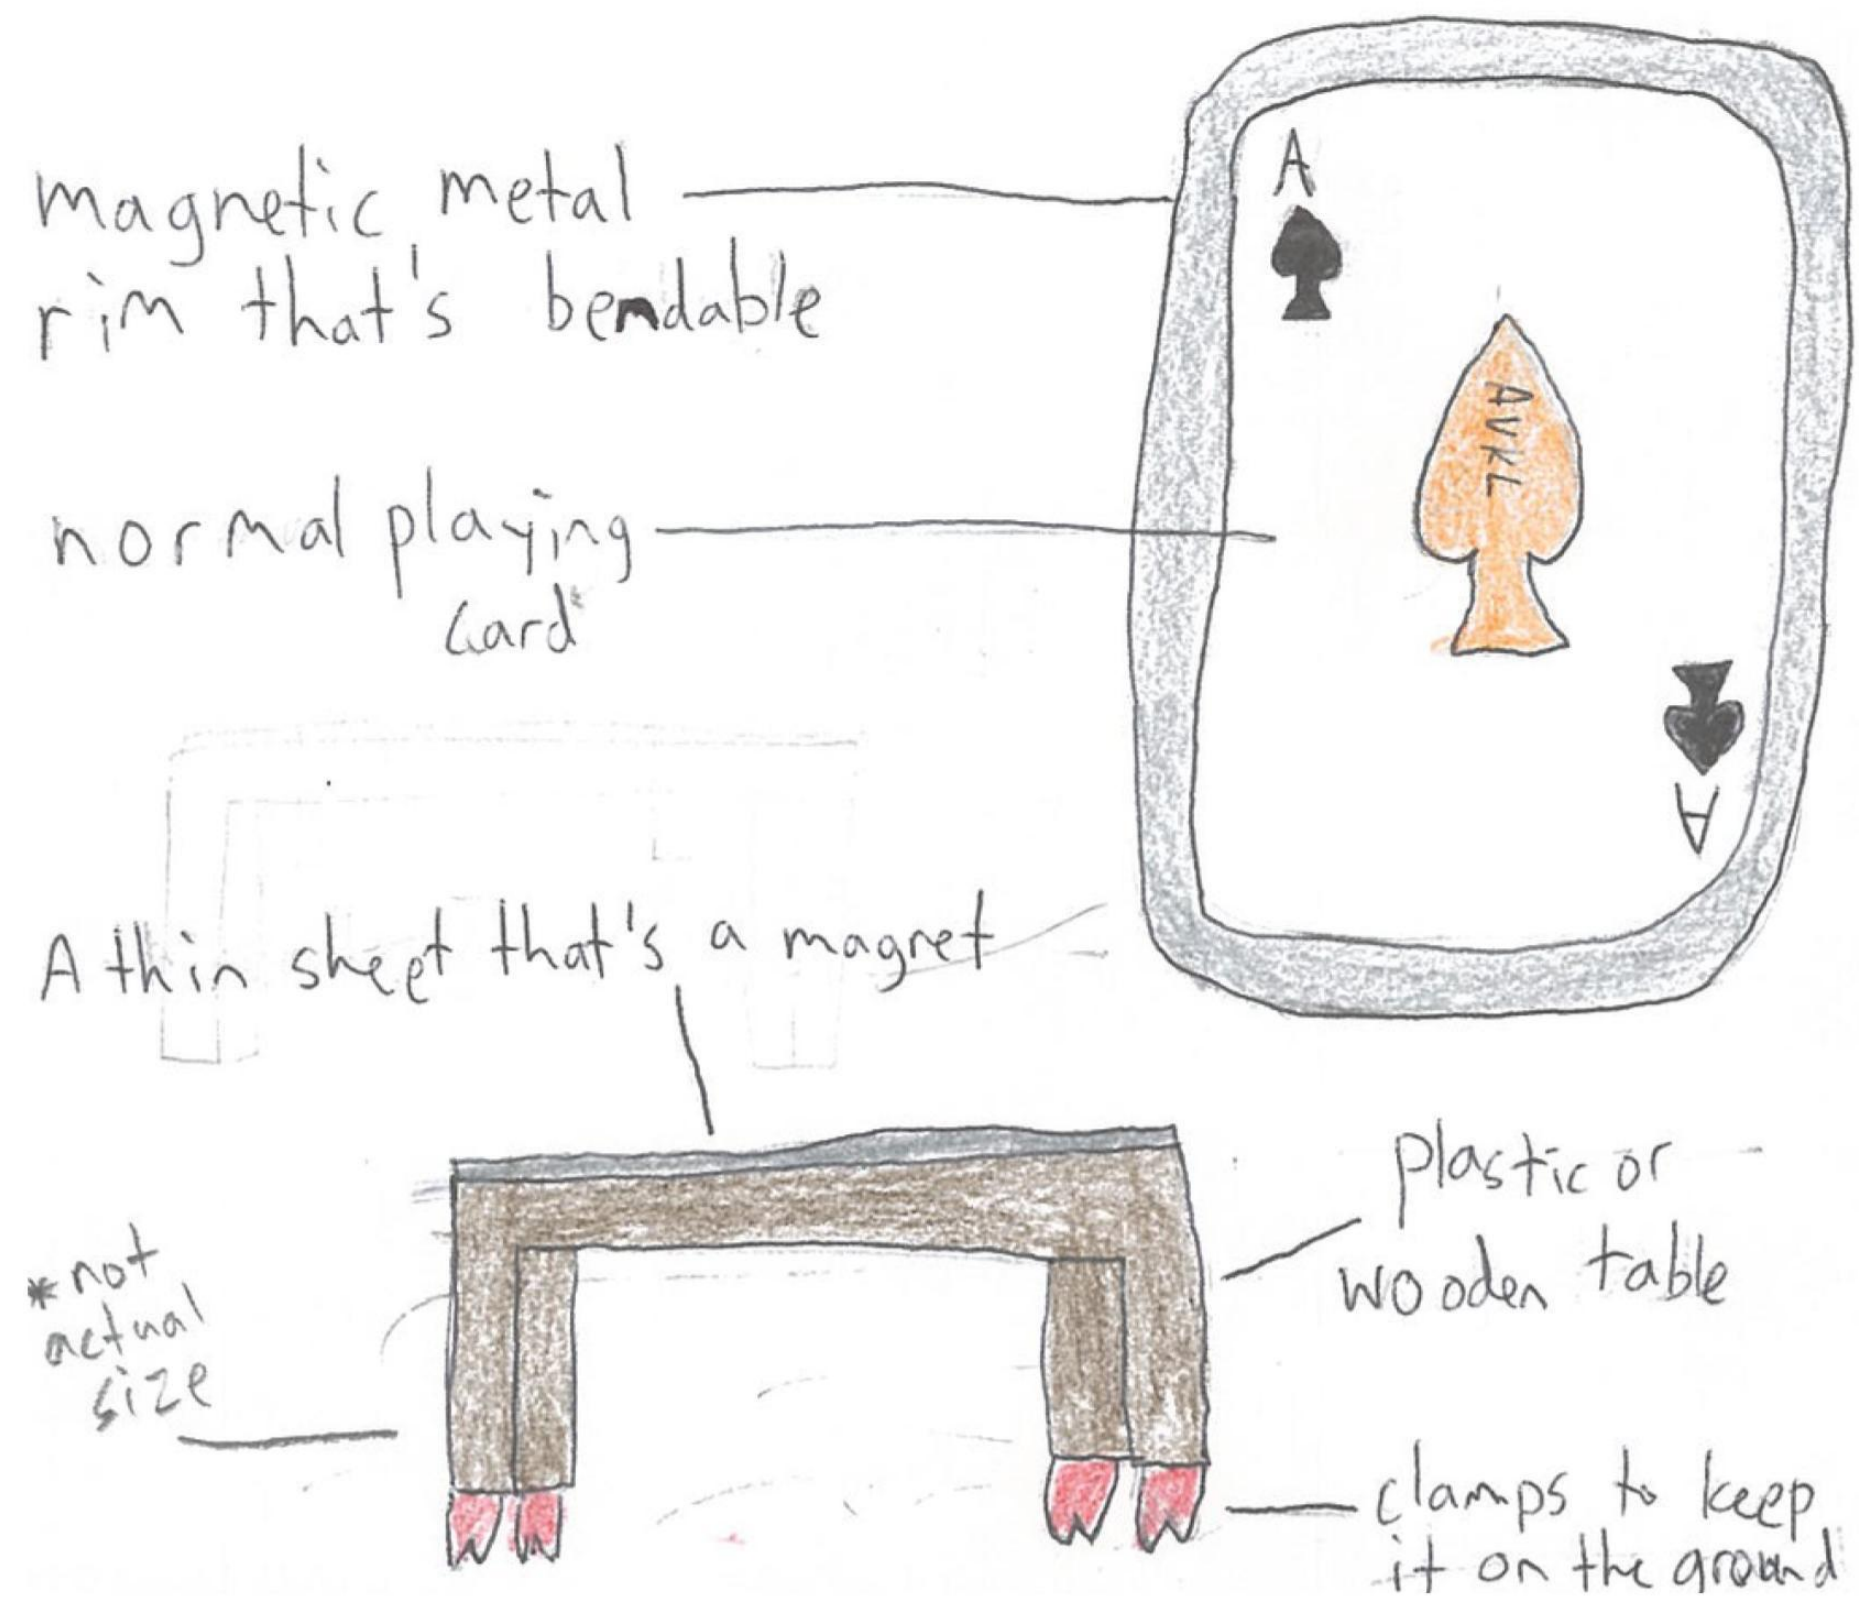 magnetic metal
rim that's bendable
A
AVKL
normal playing
card
A
A thin sheet that's a magnet
plastic or
wooden table
*not
actual
size
clamps to keep
it on the ground